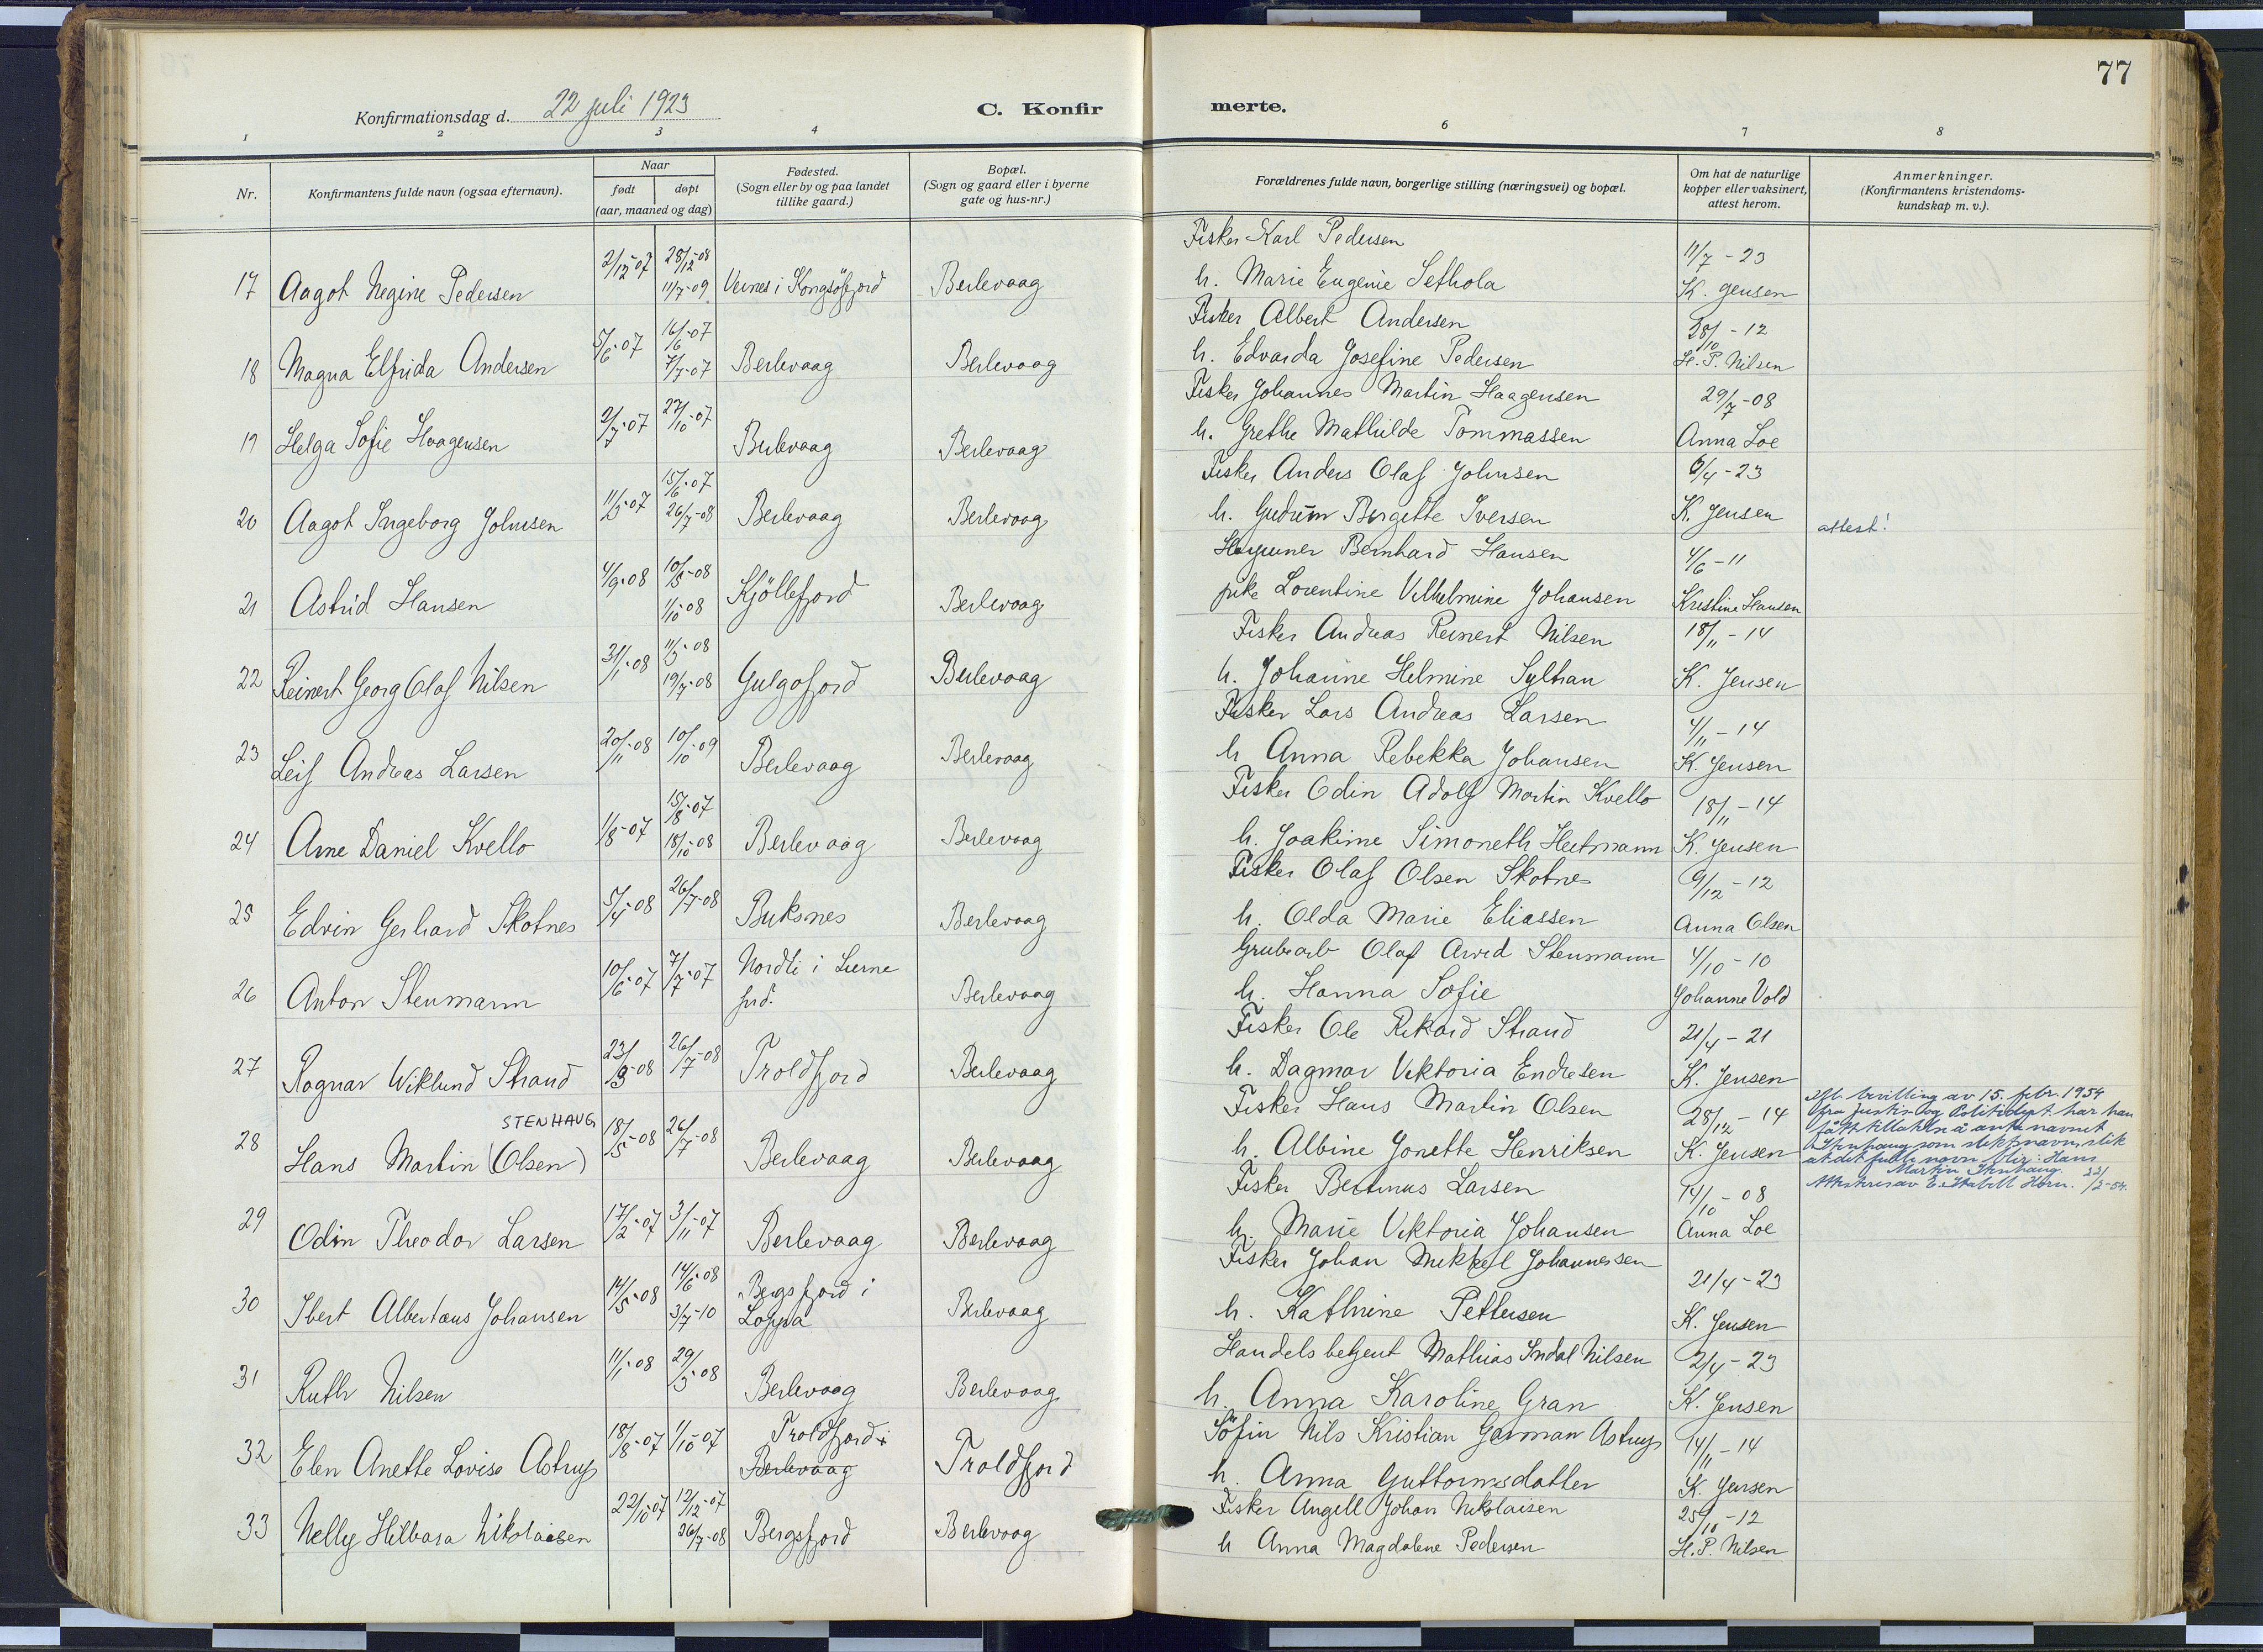 77
Konfirmationsdag d. 22 juli 1923
C. Konfirmerte.
1 2 3 4 6 7 8
Nr.
Konfirmantens fulde navn (ogsaa efternavn).
Naar
født døpt
(aar, maaned og dag)
Fødested.
(Sogn eller by og paa landet
tillike gaard.)
Bopæl.
(Sogn og gaard eller i byerne
gate og hus-nr.)
Forældrenes fulde navn, borgerlige stilling (næringsvei) og bopæl.
Om hat de naturlige
kopper eller vaksinert,
attest herom.
Anmerkninger.
(Konfirmantens kristendoms-
kundskap m. v.).
17 Aagot Regine Pedersen 2/12-07 28/12-08 11/7-09 Vernes i Kongsöfjord Berlevaag
Fisker Karl Pedersen 11/7-23
h. Marie Eugenie Sethola K. Jensen
18 Magna Elfrida Andersen 5/6-07 16/6-07 7/7-07 Berlevaag Berlevaag
Fisker Albert Andersen 28/10-12
h. Edvarda Josefine Pedersen H. P. Nilsen
19 Helga Sofie Haagensen 2/7-07 27/10-07 Berlevaag Berlevaag
Fisker Johannes Martin Haagensen 29/7-08
h. Grethe Mathilde Tommassen Anna Loe
20 Aagot Ingeborg Johnsen 11/5-07 15/6-07 26/7-08 Berlevaag Berlevaag
Fisker Anders Olaf Johnsen 6/4-23
h. Gudrun Birgitte Iversen K. Jensen attest!
21 Astrid Hansen 4/9-08 10/5-08 1/10-08 Kjöllefjord Berlevaag
Bernhard Hansen 4/6-11
pike Lorentine Vilhelmine Johansen Kristine Hansen
22 Reinert Georg Olaf Nilsen 31/1-08 11/5-08 19/7-08 Gulgofjord Berlevaag
Fisker Andreas Reinert Nilsen 18/11-14
h. Johanne Helmine Sylhan K. Jensen
23 Leif Andreas Larsen 20/11-08 10/10-09 Berlevaag Berlevaag
Fisker Lars Andreas Larsen 4/11-14
h Anna Rebekka Johansen K. Jensen
24 Arne Daniel Kvello 1/8-07 15/8-07 18/10-08 Berlevaag Berlevaag
Fisker Odin Adolf Martin Kvello 18/11-14
h. Joakime Simoneth Heitmann K. Jensen
25 Edvin Gerhard Skotnes 5/4-08 26/7-08 Buksnes Berlevaag
Fisker Olaf Olsen Skotnes 9/12-12
h. Olda Marie Eliassen Anna Olsen
26 Anton Stenmann 10/6-07 7/7-07 Nordli i Lierne Berlevaag
Grubearb Olaf Arvid Stenmann 4/10-10
h. Hanna Sofie Johanne Vold
27 Ragnar Wiklund Strand 23/3-08 26/7-08 Troldfjord Berlevaag
Fisker Ole Rikard Strand 21/4-21
h. Dagmar Viktoria Endresen K. Jensen
STENHAUG
28 Hans Martin (Olsen) 18/5-08 26/7-08 Berlevaag Berlevaag
Fisker Hans Martin Olsen 28/12-14
h. Albine Jonette Henriksen K. Jensen
Ifl. bevilling av 15. febr. 1954
fra Justis- og Politidept. har han
fått tillatelse å anta navnet
Stenhaug som slektsnavn, slik
at det fulle navn blir: Hans
Martin Stenhaug. 22/2-54.
29 Odin Theodor Larsen 17/2-07 3/11-07 Berlevaag Berlevaag
Fisker Bertinus Larsen 14/10-08
h. Marie Viktoria Johansen Anna Loe
30 Ibert Albertæus Johansen 14/5-08 14/6-08 3/7-10 Bergsfjord i Loppa Berlevaag
Fisker Johan Mikkel Johannessen 21/4-23
h. Kathrine Pettersen K. Jensen
31 Ruth Nilsen 11/1-08 29/3-08 Berlevaag Berlevaag
Handelsbetjent Mathias Indal Nilsen 2/4-23
h. Anna Karoline Gran K. Jensen
32 Elen Anette Lovise Astrup 18/8-07 1/10-07 Troldfjord i Berlevaag Troldfjord
Nils Kristian German Astrup 14/11-14
h. Anna Guttormsdatter K. Jensen
33 Nelly Hilbara Nikolaisen 22/10-07 12/12-07 26/7-08 Bergsfjord Berlevaag
Fisker Angell Johan Nikolaisen 25/10-12
h Anna Magdalene Pedersen H. P. Nilsen